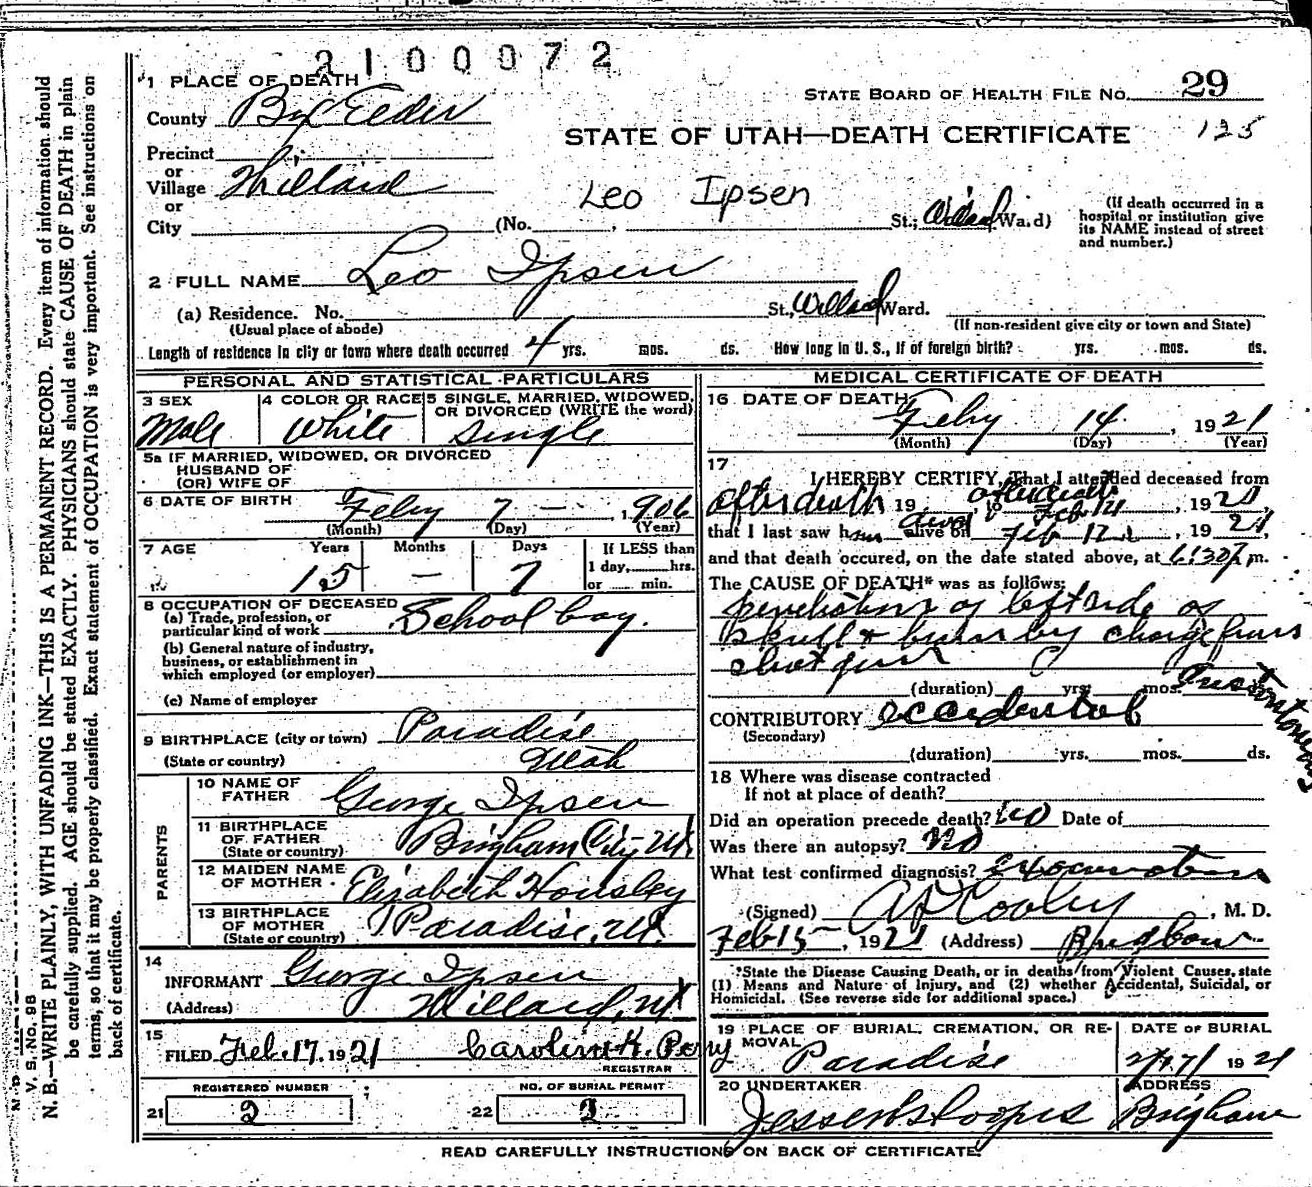 2100072
1 PLACE OF DEATH
STATE BOARD OF HEALTH FILE NO. 29
County Box Elder
STATE OF UTAH—DEATH CERTIFICATE 125
Precinct
or
Village Willard
Leo Ipsen
or
City (No. St.; Willard Ward)
(If death occurred in a
hospital or institution give
its NAME instead of street
and number.)
2 FULL NAME Leo Ipsen
(a) Residence. No. St., Willard Ward.
(Usual place of abode)
(If non-resident give city or town and State)
Length of residence in city or town where death occurred 4 yrs. mos. ds. How long in U. S., if of foreign birth? yrs. mos. ds.
PERSONAL AND STATISTICAL PARTICULARS
3 SEX
Male
4 COLOR OR RACE
White
5 SINGLE, MARRIED, WIDOWED,
OR DIVORCED (WRITE the word)
Single
5a IF MARRIED, WIDOWED, OR DIVORCED
HUSBAND OF
(OR) WIFE OF
6 DATE OF BIRTH Feby 7 — 1906
(Month) (Day) (Year)
7 AGE Years Months Days
15 — 7
If LESS than
1 day, hrs.
or min.
8 OCCUPATION OF DECEASED
(a) Trade, profession, or
particular kind of work School boy.
(b) General nature of industry,
business, or establishment in
which employed (or employer)
(c) Name of employer
9 BIRTHPLACE (city or town) Paradise
(State or country) Utah
PARENTS
10 NAME OF
FATHER George Ipsen
11 BIRTHPLACE
OF FATHER
(State or country) Brigham City Ut.
12 MAIDEN NAME
OF MOTHER Elizabeth Housley
13 BIRTHPLACE
OF MOTHER
(State or country) Paradise, Ut.
14
INFORMANT George Ipsen
(Address) Willard, Ut
15
FILED Feb. 17, 1921 Caroline K. Perry
REGISTRAR
REGISTERED NUMBER
21 2
NO. OF BURIAL PERMIT
22 2
MEDICAL CERTIFICATE OF DEATH
16 DATE OF DEATH
Feby 14, 1921
(Month) (Day) (Year)
17
I HEREBY CERTIFY, That I attended deceased from
after death 19 , to after death Feb 14, 1921
that I last saw him alive on dead Feb 1921,
and that death occured, on the date stated above, at 6:30 P.m.
The CAUSE OF DEATH* was as follows:
penetration of left side of
skull & brain by charge from
shot gun
(duration) yrs. mos. Instantaneous
CONTRIBUTORY accidental
(Secondary)
(duration) yrs. mos. ds.
18 Where was disease contracted
If not at place of death?
Did an operation precede death? No Date of
Was there an autopsy? No
What test confirmed diagnosis? Examination
(Signed) A D Cooley, M. D.
Feb 15, 1921 (Address) Brigham
*State the Disease Causing Death, or in deaths from Violent Causes, state
(1) Means and Nature of Injury, and (2) whether Accidental, Suicidal, or
Homicidal. (See reverse side for additional space.)
19 PLACE OF BURIAL, CREMATION, OR RE-
MOVAL Paradise
DATE OF BURIAL
2/17/ 1921
20 UNDERTAKER
ADDRESS
Brigham
READ CAREFULLY INSTRUCTIONS ON BACK OF CERTIFICATE.
V. S. NO. 98
N. B.—WRITE PLAINLY, WITH UNFADING INK—THIS IS A PERMANENT RECORD. Every item of information should
be carefully supplied. AGE should be stated EXACTLY. PHYSICIANS should state CAUSE OF DEATH in plain
terms, so that it may be properly classified. Exact statement of OCCUPATION is very important. See instructions on
back of certificate.